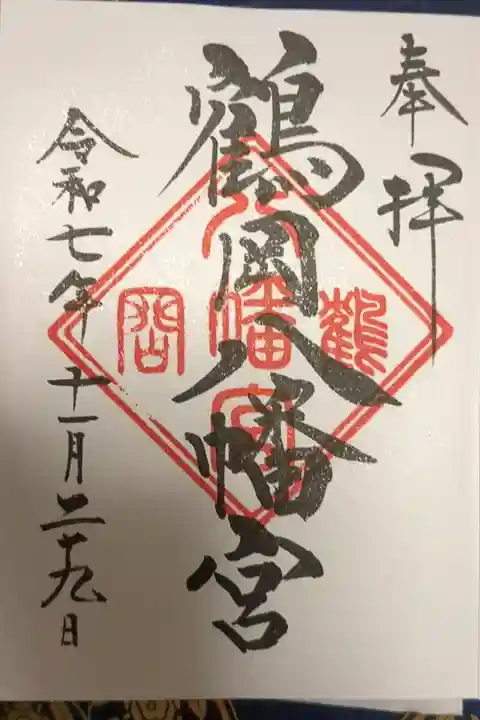 奉拝
鶴岡八幡宮
鶴岡
八幡宮
令和七年十一月二十九日